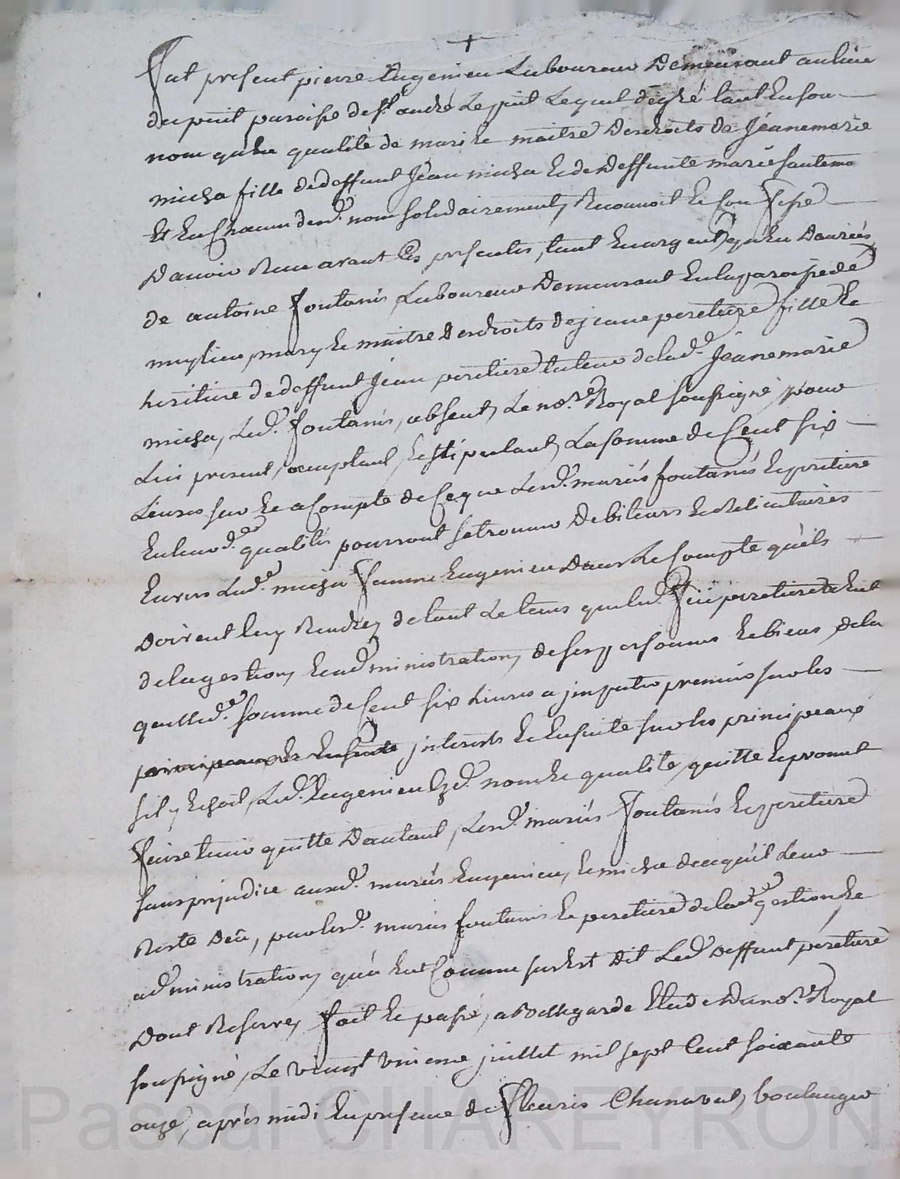 +
Fut présent pierre Eugenieu Laboureur Demeurant au lieu
du puit paroisse de st andré Le puit Lequel de gré tant En son
nom qu'En qualité de mari Et maitre Desdroits de Jeanemarie
micha fille de deffunt Jean micha Et de deffunte marie
Et En Chacun desd. nom solidairement, Reconnoit Et Con fesse
D'avoir Reçu avant Ces présentes, tant En argent qu'En Danrées
de antoine Fontanés Laboureur Demeurant En la paroisse de
myzlieu, mary Et maitre Desdroits de jeane peretiere fille Et
heritiere de deffunt Jean peretiere tuteur de lad.e Jeanemarie
micha, Led. Fontanés, absent, Le no.re Royal soussigné, pour
Lui present, acceptant, Et stipulant, La somme de Cent six
Livres sur Et a Compte de Ce que Lesd. mariés fontanés Et peretiere
En leurd.e qualités pourront se trouver Debiteurs Et Reliquataires
Envers Lad.e micha femme Eugenieu Dans Le Compte qu'ils
Doivent luy Rendre, de tout Le tems que led. feu peretiere a Eut
de la gestion, Et administration, de ses personnes Et biens, de la
quelle d.e somme de Cent six Livres a imputer premier sur les
principaux Et Ensuite interets Et Ensuite sur les principeaux
sil y Echoit, Led. Eugenieu Esd. nom Et qualité, quitte Et promet
faire tenir quitte D'autant, Lesd. mariés Fontanés Et peretiere
sans prejudice auxd. mariés Eugenieu, Et micha de ce qu'il Leur
Reste Dû, par lesd. mariés fontanés Et peretiere de lad.e gestion Et
administration, qu'a Eut Comme sus Est Dit Led. Deffunt péretiere
Dont Reserve, fait Et passé, a Bellegarde Etude Du no.re Royal
soussigné, Le vingt unieme juillet mil sept Cent soixante
onze, après midi En présence de Fleuris Chanavat, boulanger
Pascal CHAREYRON